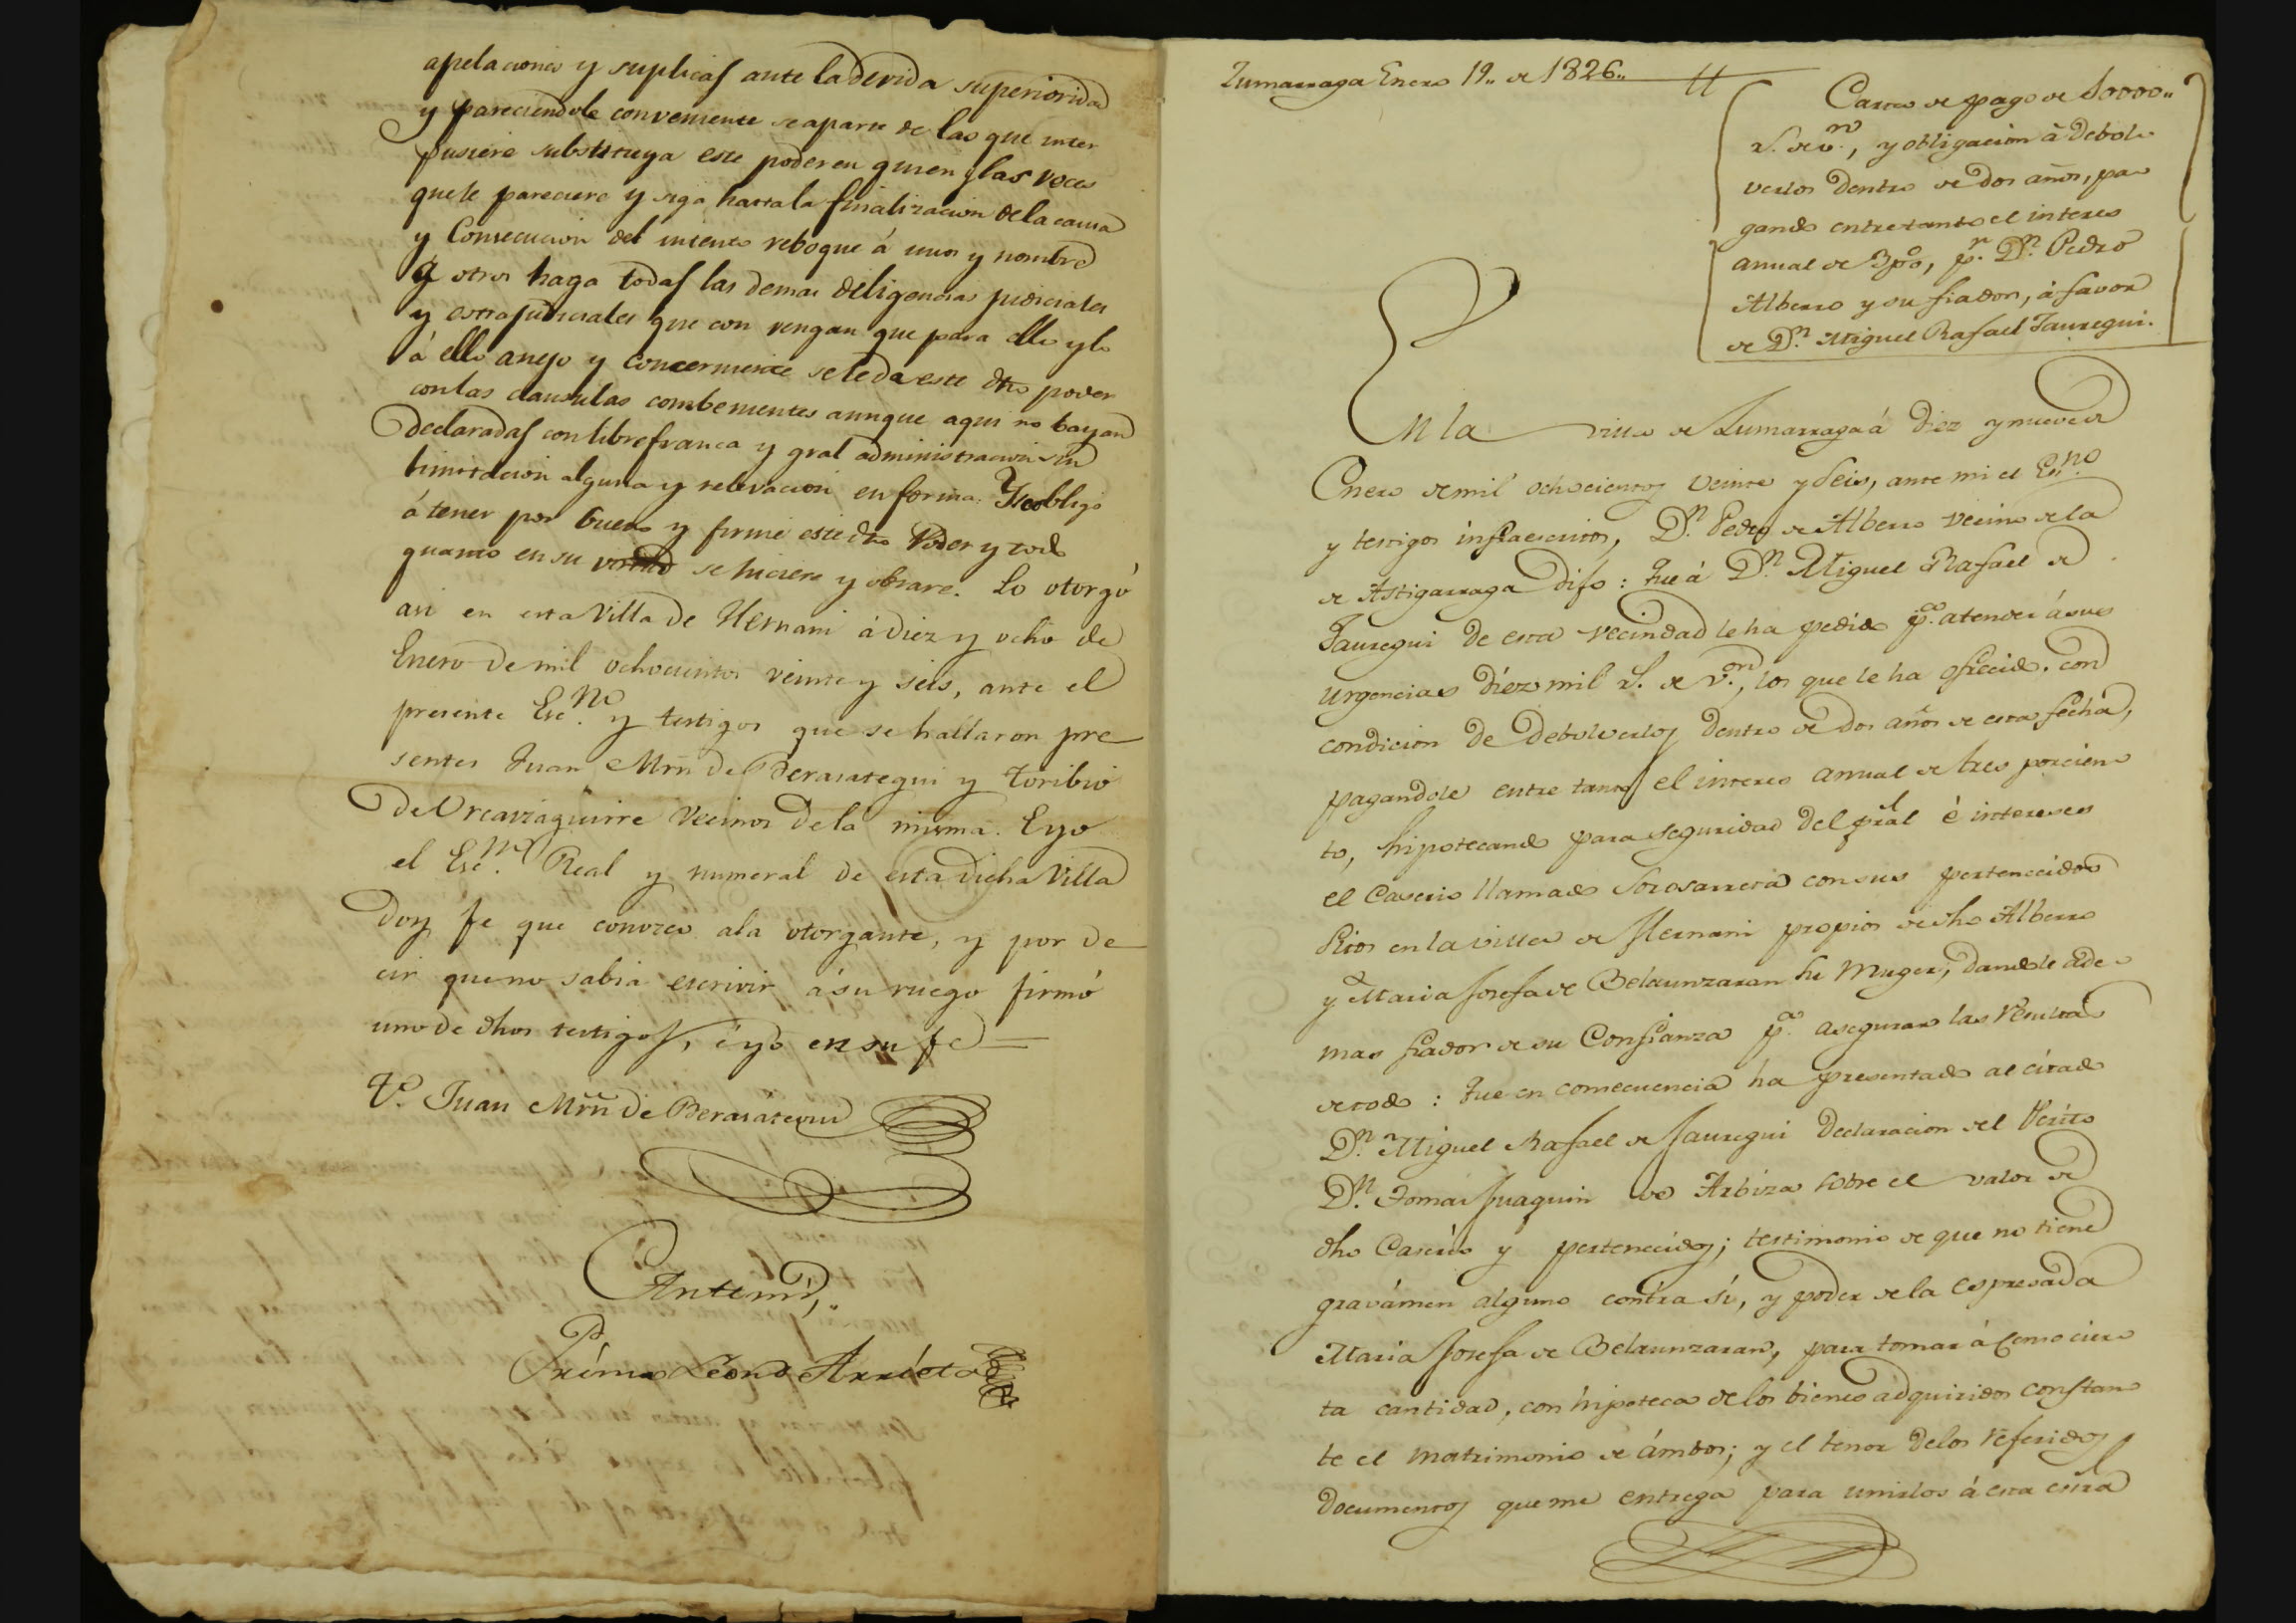 apelaciones y suplicas ante la devida superioridad
y pareciendole conveniente se aparte de las que inter
pusiere substituya este poder en quien y las veces
que le pareciere y siga hasta la finalizacion de la causa
y Consecucion del intento reboque á unos y nombre
otros haga todas las demas deligencias judiciales
y estrajudiciales que con vengan que para ello y lo
á ello anejo y concerniente se le da este dho poder
con las clausulas combenientes aunque aqui no bayan
declaradas con libre franca y gral administracion sin
limitacion alguna y relevacion en forma. Y se obligo
á tener por bueno y firme este dho Poder y todo
quanto en su virtud se hiciere y obrare. Lo otorgó
asi en esta Villa de Hernani á diez y ocho de
Enero de mil ochocientos veinte y seis, ante el
presente Esc.no y testigos que se hallaron pre
sentes Juan Mrn de Berasategui y Toribio
de Urcarraguirre Vecinos de la misma. E yo
el Esc.no Real y numeral de esta dicha Villa
doy fe que conozco a la otorgante, y por de
cir que no sabia escrivir á su ruego firmó
uno de dhos testigos, é yo en su fe =
T.o Juan Mrn de Berasategui
Ante mi,
Primo Leon de Arrieta
Zumarraga Enero 19.. de 1826..
Carta de pago de 10000..
r.s de v.on, y obligacion á debol
verlos dentro de dos años, pa
gando entretanto el interes
anual de 3 p%, p.r D.n Pedro
Alberro y su fiador, á favor
de D.n Miguel Rafael Jauregui.
En la villa de Zumarraga á diez y nueve de
Enero de mil ochocientos veinte y seis, ante mi el Es.no
y testigos infraescritos, D.n Pedro de Alberro vecino de la
de Astigarraga dijo: Que á D.n Miguel Rafael de
Jauregui de esta vecindad le ha pedido p.a atender á sus
urgencias diez mil r.s de v.on, los que le ha ofrecido, con
condicion de debolverlos dentro de dos años de esta fecha,
pagandole entre tanto el interes anual de tres por cien
to, hipotecando para seguridad del pral é intereses
el Caserio llamado Sorosarreta con sus pertenecidos
sitos en la villa de Hernani propios de dho Alberro
y Maria Josefa de Belaunzaran su Muger, dandole ade
mas fiador de su Confianza p.a asegurar las resultas
de todo: Que en consecuencia ha presentado al citado
D.n Miguel Rafael de Jauregui declaracion del Perito
D.n Tomas Juaquin de Arbiza sobre el valor de
dho Caserio y pertenecidos; testimonio de que no tiene
gravámen alguno contra sí, y poder de la espresada
Maria Josefa de Belaunzaran, para tomar á Censo cier
ta cantidad, con hipoteca de los bienes adquiridos constan
te el matrimonio de ámbos; y el tenor de los referidos
documentos que me entrega para unirlos á esta esra